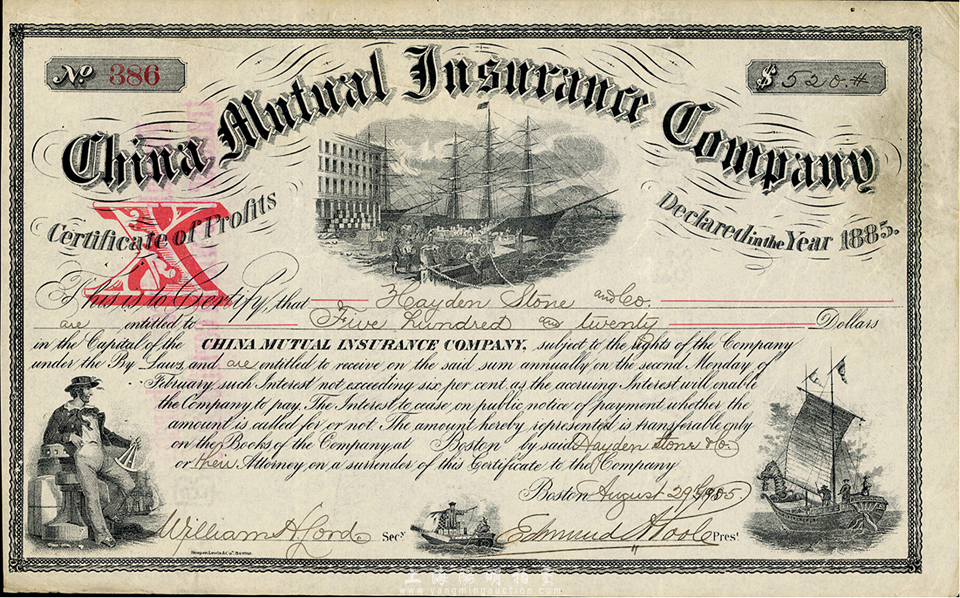 No 386
$ 520.#
China Mutual Insurance Company
Certificate of Profits
Declared in the Year 1885.
X
This is to Certify, that Hayden Stone and Co.
are entitled to Five hundred and twenty Dollars
in the Capital of the CHINA MUTUAL INSURANCE COMPANY, subject to the rights of the Company
under the By Laws, and are entitled to receive on the said sum annually on the second Monday of
February such Interest not exceeding six per cent. as the accruing Interest will enable
the Company to pay. The Interest to cease on public notice of payment whether the
amount is called for or not. The amount hereby represented is transferable only
on the Books of the Company at Boston by said Hayden Stone & Co.
or their Attorney on a surrender of this Certificate to the Company
Boston August 29th 1885.
William H Lord Secy
Edmund A Poole Prest
Hooper, Lewis & Co. Boston.
上海陽明拍賣
www.yangmingauction.com